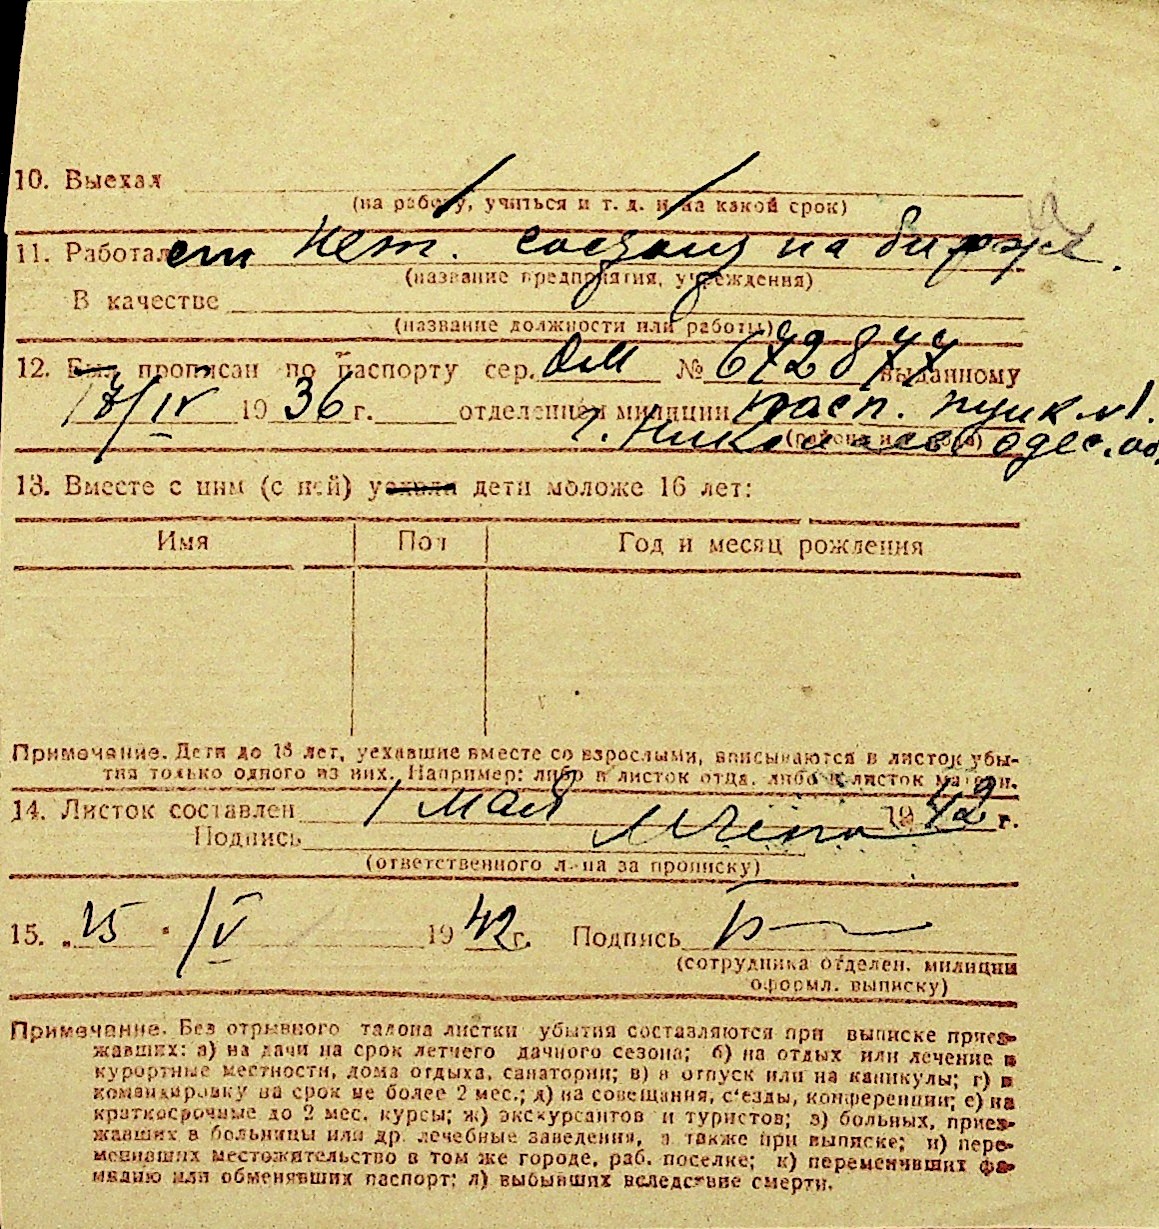 10. Выехал
(на работу, учиться и т. д. и на какой срок)
11. Работает нет. состоит на бирже.
(название предприятия, учреждения)
В качестве
(название должности или работы)
12. Был прописан по паспорту сер. ОМ № 672877 выданному
17/IV 1936 г. отделением милиции пасп. пунк. №1.
г. Николаев Одес. об.
(района и города)
13. Вместе с ним (с ней) уехали дети моложе 16 лет:
Имя Пол Год и месяц рождения
Примечание. Дети до 18 лет, уехавшие вместе со взрослыми, вписываются в листок убы-
тия только одного из них. Например: либо в листок отца, либо в листок матери.
14. Листок составлен 1 мая 1942 г.
Подпись
(ответственного лица за прописку)
15. „25" /V 1942 г. Подпись
(сотрудника отделен. милиции
оформл. выписку)
Примечание. Без отрывного талона листки убытия составляются при выписке приез-
жавших: а) на дачи на срок летнего дачного сезона; б) на отдых или лечение в
курортные местности, дома отдыха, санатории; в) в отпуск или на каникулы; г) в
командировку на срок не более 2 мес.; д) на совещания, с'езды, конференции; е) на
краткосрочные до 2 мес. курсы; ж) экскурсантов и туристов; з) больных, приез-
жавших в больницы или др. лечебные заведения, а также при выписке; и) пере-
менивших местожительство в том же городе, раб. поселке; к) переменивших фа-
милию или обменявших паспорт; л) выбывших вследствие смерти.